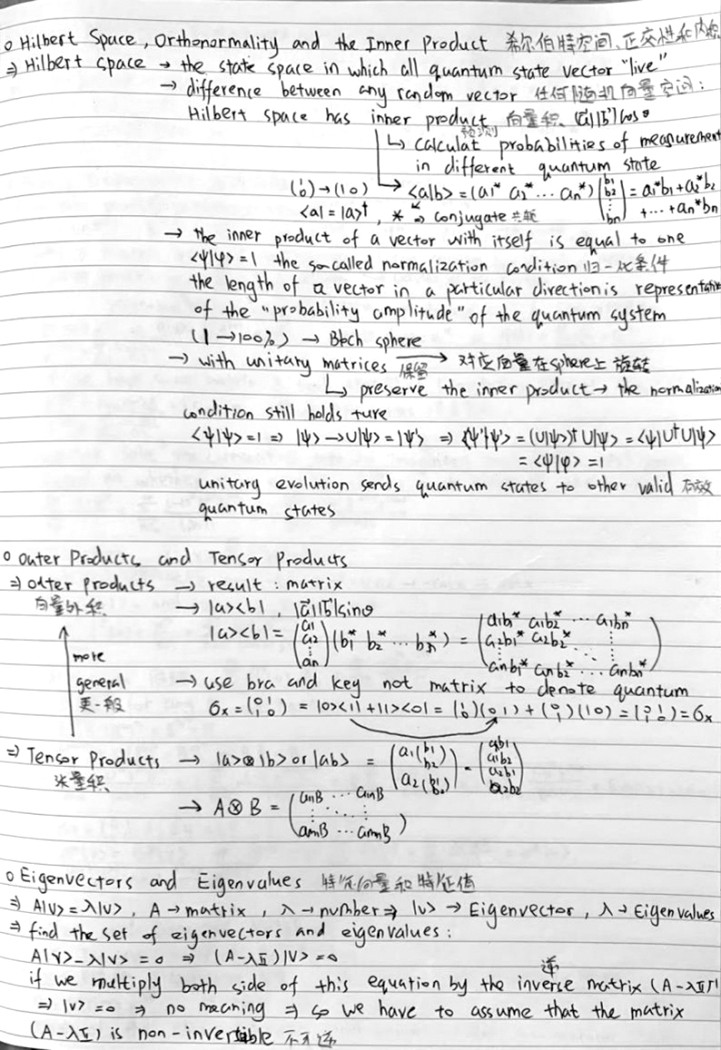 o Hilbert Space, Orthonormality and the Inner Product 希尔伯特空间、正交性和内积
⇒ Hilbert space → the state space in which all quantum state vector "live"
→ difference between any random vector 任何随机向量空间:
Hilbert space has inner product 向量积、|a⃗||b⃗|cosθ
预测
↳ calculat probabilities of measurement
in different quantum state
(1 0) → (1 0) ↳ <a|b> = (a1* a2* ... an*) (b1 b2 ⋮ bn) = a1*b1 + a2*b2
<a| = |a>†, * ⇒ conjugate 共轭 + ... + an*bn
→ the inner product of a vector with itself is equal to one
<ψ|ψ> = 1 the so-called normalization condition 归一化条件
the length of a vector in a particular direction is representative
of the "probability amplitude" of the quantum system
(1 → 100%) → Bloch sphere
→ with unitary matrices → 对应向量在sphere上 旋转
保留
↳ preserve the inner product → the normalization
condition still holds ture
<ψ|ψ> = 1 ⇒ |ψ> → U|ψ> = |ψ'> ⇒ <ψ'|ψ'> = (U|ψ>)† U|ψ> = <ψ|U†U|ψ>
= <ψ|ψ> = 1
unitary evolution sends quantum states to other valid 有效
quantum states
o Outer Products and Tensor Products
⇒ outer products → result : matrix
向量外积 → |a><b|, |a⃗||b⃗|sinθ
|a><b| = (a1 a2 ⋮ an) (b1* b2* ... bn*) = (a1b1* a1b2* ... a1bn* a2b1* a2b2* ⋱ ⋮ anb1* anb2* ... anbn*)
more
general → use bra and key not matrix to denote quantum
更一般 σx = (0 1 1 0) = |0><1| + |1><0| = (1 0)(0 1) + (0 1)(1 0) = (0 1 1 0) = σx
⇒ Tensor Products → |a>⊗|b> or |ab> = (a1(b1 b2) a2(b1 b2)) = (a1b1 a1b2 a2b1 a2b2)
张量积 → A ⊗ B = (a11B ... a1nB ⋮ ⋱ ⋮ am1B ... amnB)
o Eigenvectors and Eigenvalues 特征向量和特征值
⇒ A|v> = λ|v>, A → matrix, λ → number ⇒ |v> → Eigenvector, λ → Eigenvalues
⇒ find the set of eigenvectors and eigenvalues:
A|v> - λ|v> = 0 ⇒ (A-λI)|v> = 0
逆
if we multiply both side of this equation by the inverse matrix (A-λI)⁻¹
⇒ |v> = 0 ⇒ no meaning ⇒ so we have to assume that the matrix
(A-λI) is non-invertible 不可逆